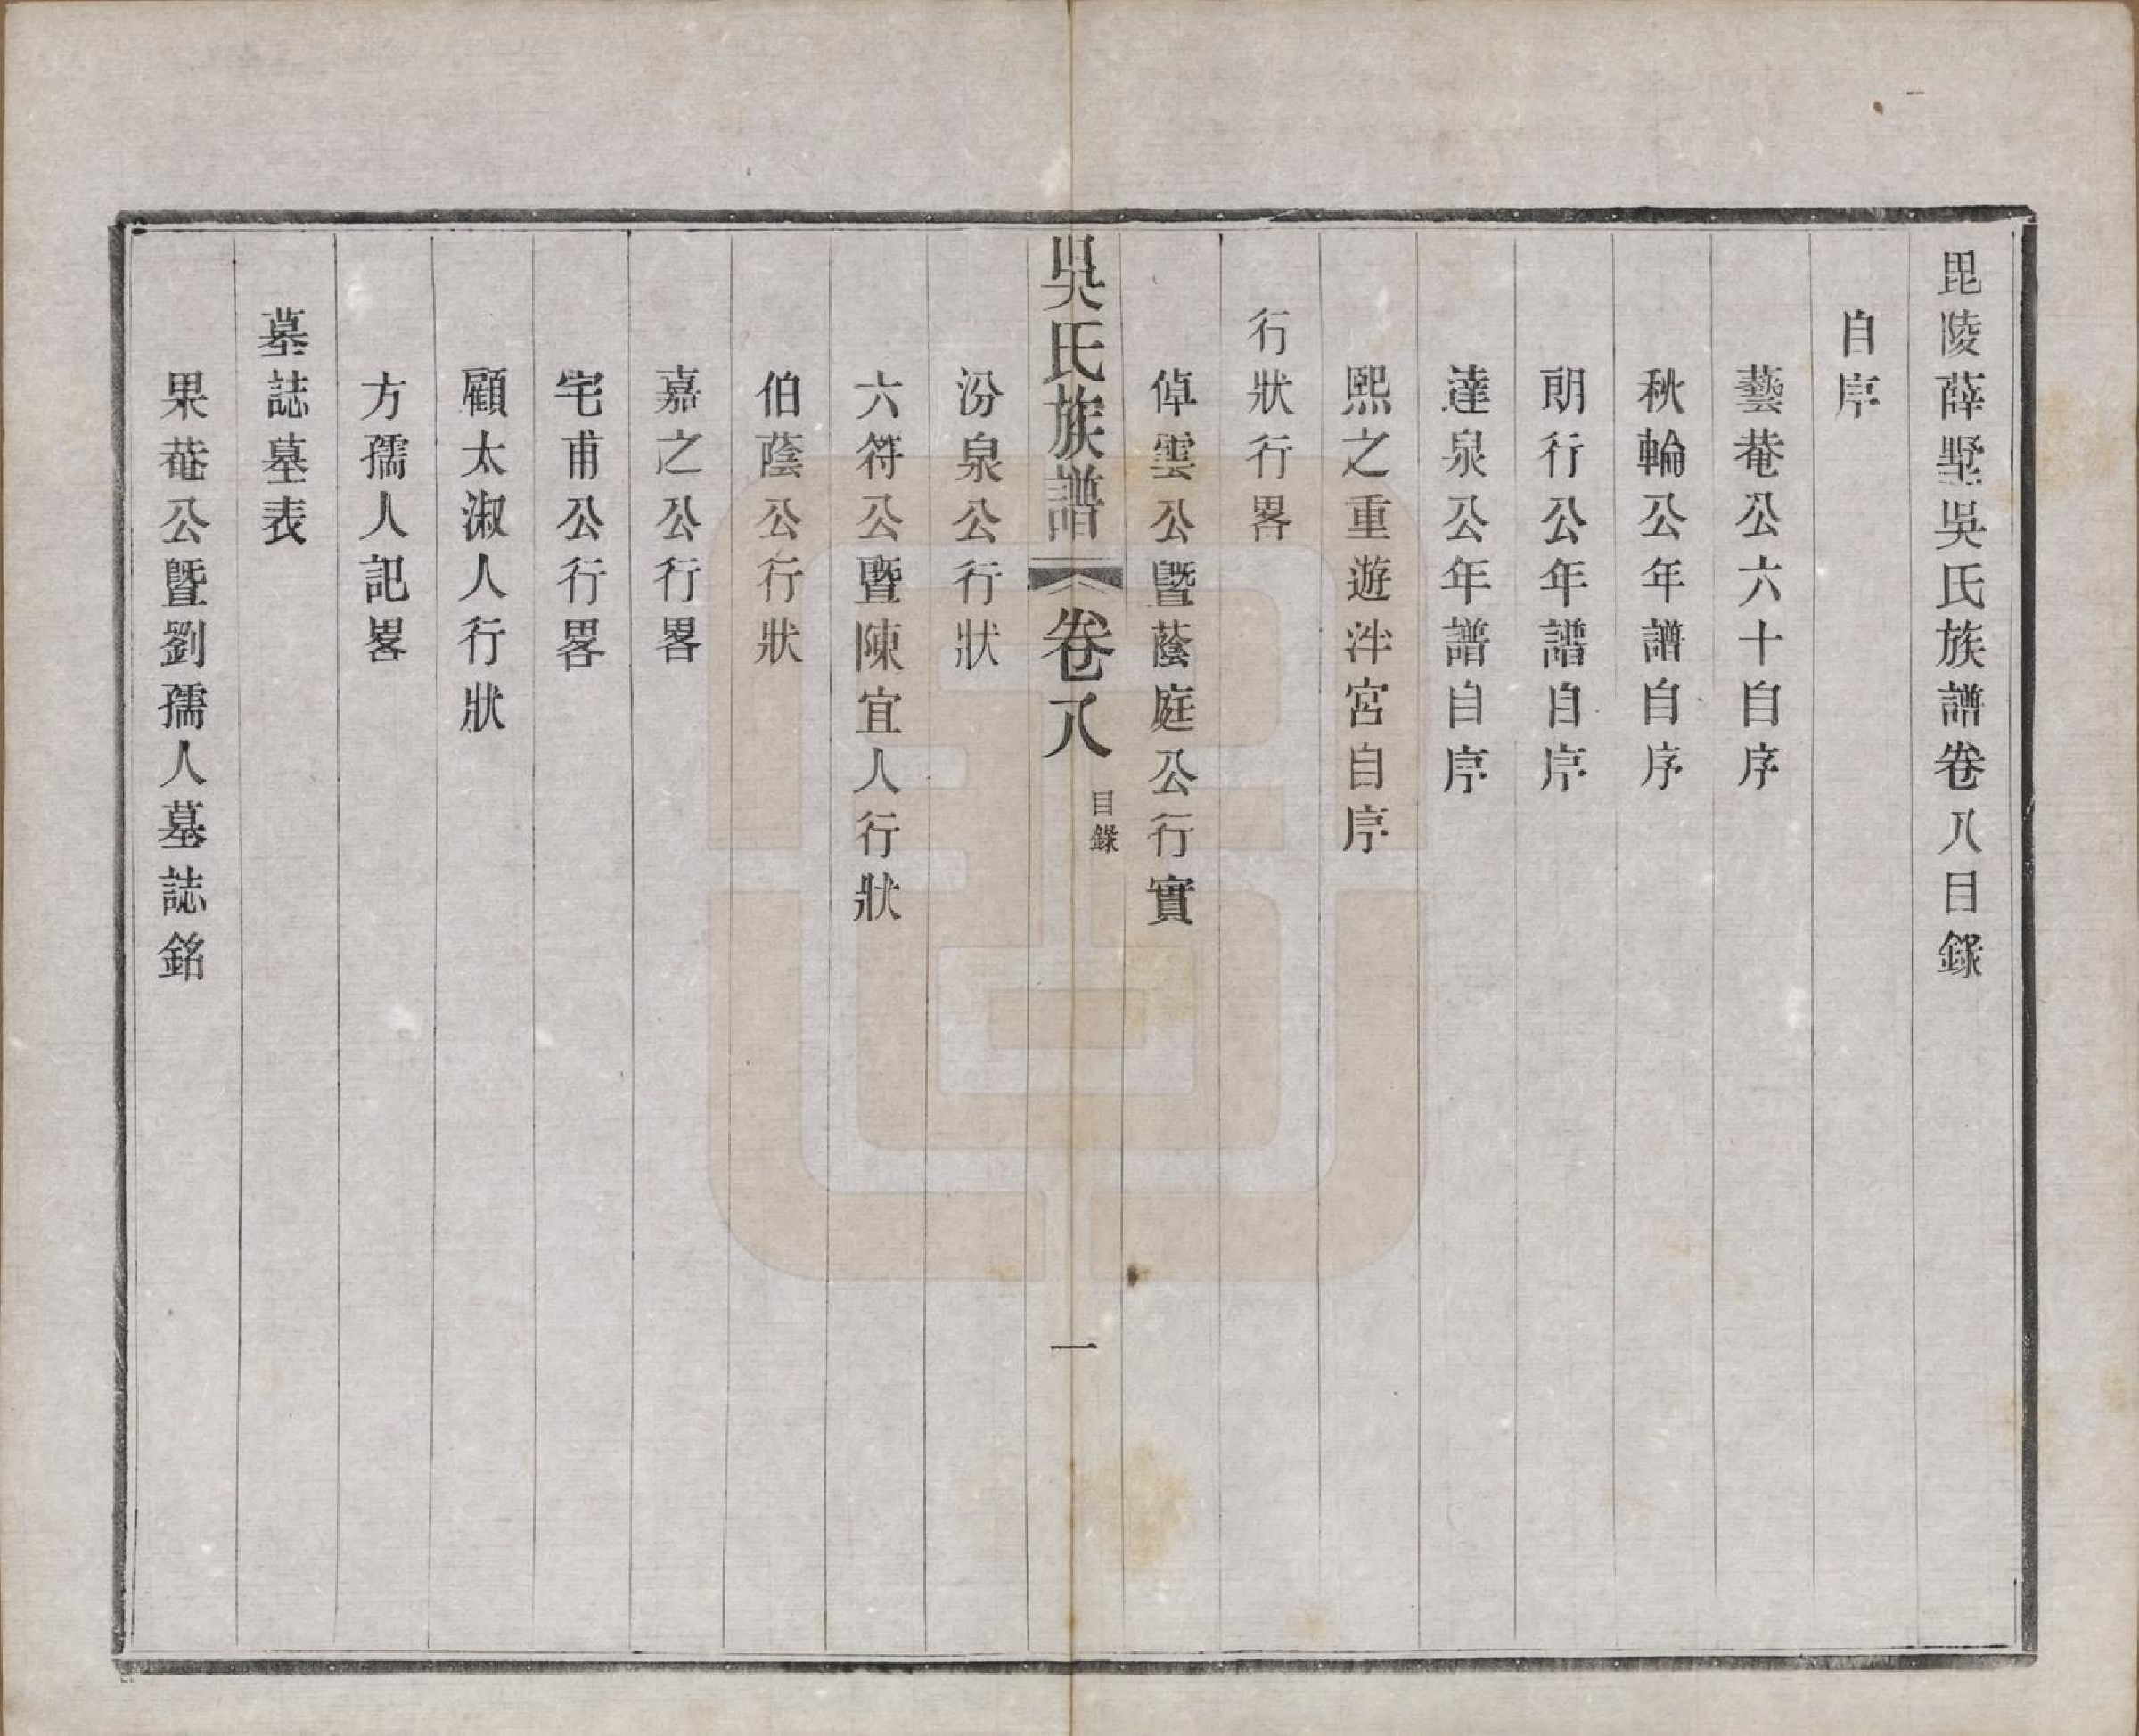 毘陵薛墅吳氏族譜卷八目錄
自序
藝菴公六十自序
秋輪公年譜自序
朗行公年譜自序
達泉公年譜自序
熙之重遊泮宮自序
行狀行畧
倬雲公暨蔭庭公行實
吳氏族譜
卷八
目錄
一
汾泉公行狀
六符公暨陳宜人行狀
伯蔭公行狀
嘉之公行畧
宅甫公行畧
顧太淑人行狀
方孺人記畧
墓誌墓表
果菴公暨劉孺人墓誌銘